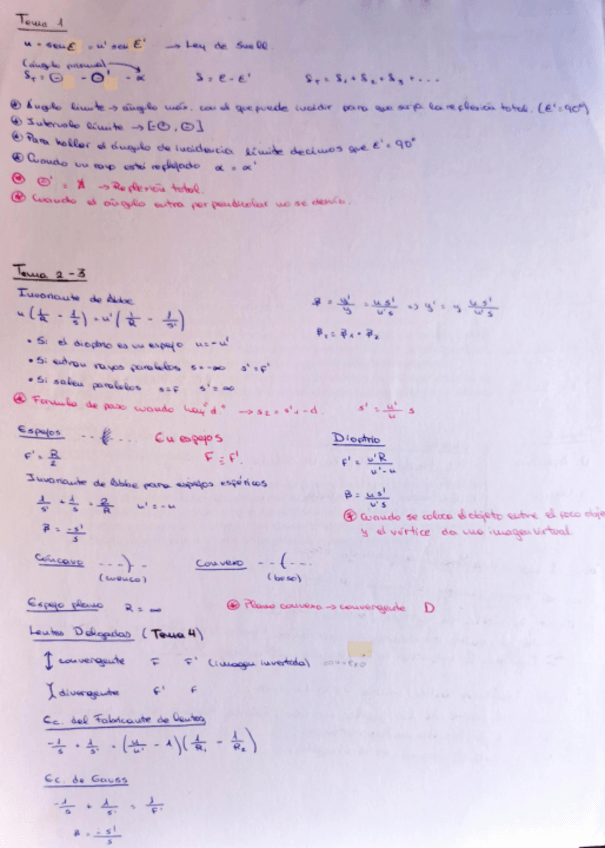 Tema 1
n · sen ε = n' sen ε' → Ley de Snell
(ángulo prisma)
δT = Θ - Θ' - α    δ = ε - ε'    δT = δ1 + δ2 + δ3 + ...
Ángulo límite → ángulo máx. con el que puede incidir para que surja la reflexión total. (ε' = 90º)
Intervalo límite → [Θ, Θ]
Para hallar el ángulo de incidencia límite decimos que ε' = 90º
Cuando un rayo está reflejado α = α'
Θ' = ∄ → Reflexión total.
Cuando el ángulo entra perpendicular no se desvía.
Tema 2-3
Invariante de Abbe
n (1/R - 1/s) = n' (1/R - 1/s')
β = y'/y = ns'/n's ⇒ y' = y ns'/n's
• Si el dioptrio es un espejo n = -n'
• Si entran rayos paralelos s = -∞ s' = f'
• Si salen paralelos s = f s' = ∞
Formula de paso cuando hay "d" → s2 = s'1 - d.    s' = n'/n s
Espejos    En espejos    Dioptrio
F' = R/2    F = F'.    F' = n'R/n'-n
Invariante de Abbe para espejos esféricos
1/s' + 1/s = 2/R    n' = -n
β = ns'/n's
β = -s'/s
Cuando se coloca el objeto entre el foco objeto
y el vértice da una imagen virtual
Cóncavo ---)--    Convexo --(---
(beso)
Espejo plano R = ∞    Plano convexo → convergente D
Lentes Delgadas (Tema 4)
convergente F F' (imagen invertida) convexo
divergente F' F
Ec. del Fabricante de lentes
-1/s + 1/s' = (n/n' - 1)(1/R1 - 1/R2)
Ec. de Gauss
-1/s + 1/s' = 1/f'
β = -s'/s